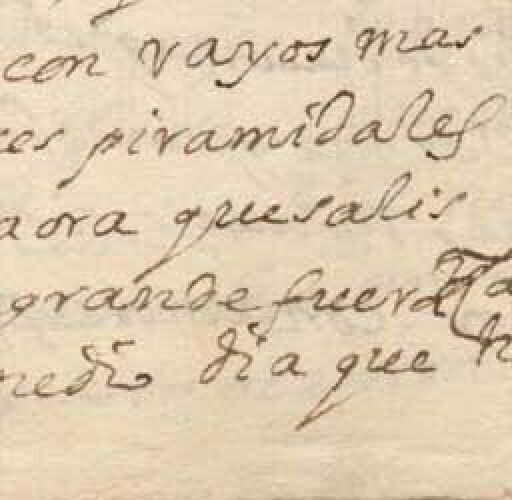 con rayos mas
es piramidales
aora que salis
grande fuera
medio dia que